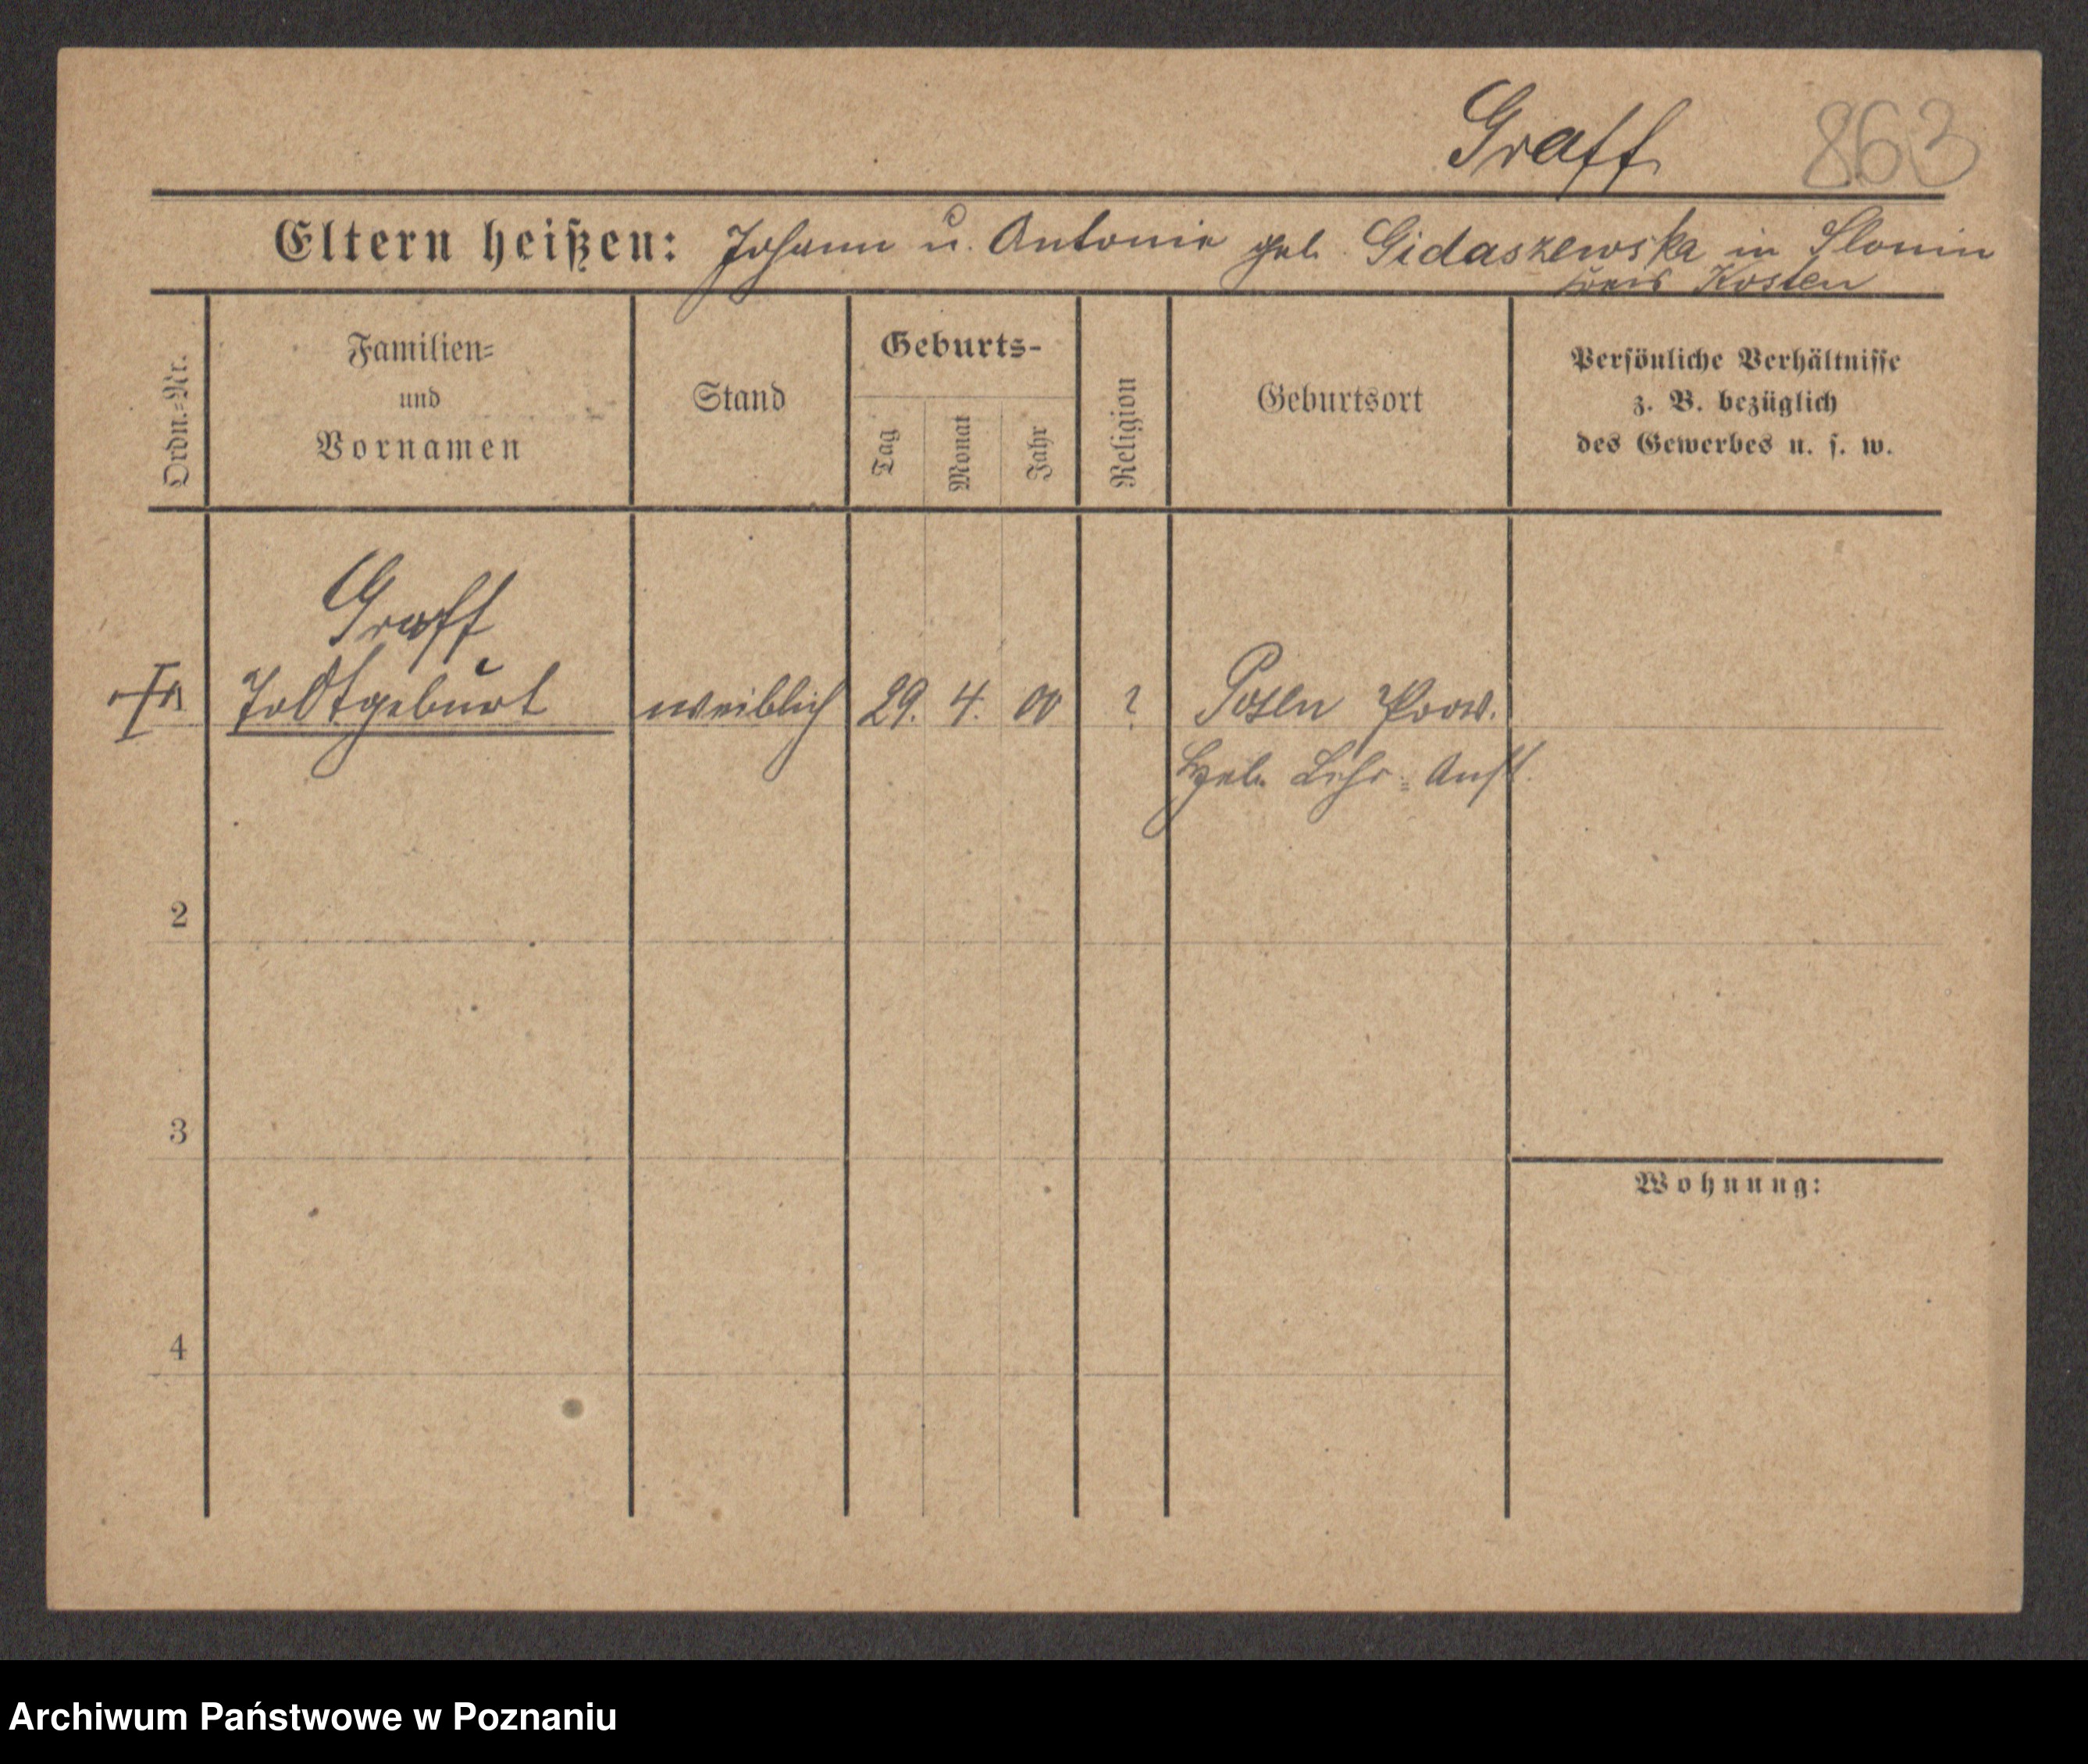 Graff 863
Eltern heißen: Johann u. Antonie geb. Gidaszewska in Slonin
Kreis Kosten
Ordn.-Nr.
Familien-
und
Vornamen
Stand
Geburts-
Tag
Monat
Jahr
Religion
Geburtsort
Persönliche Verhältnisse
z. B. bezüglich
des Gewerbes u. s. w.
Graff
Todtgeburt weiblich 29. 4. 00 ? Posen Prov.
Heb. Lehr-Anst.
2
3
Wohnung:
4
Archiwum Państwowe w Poznaniu